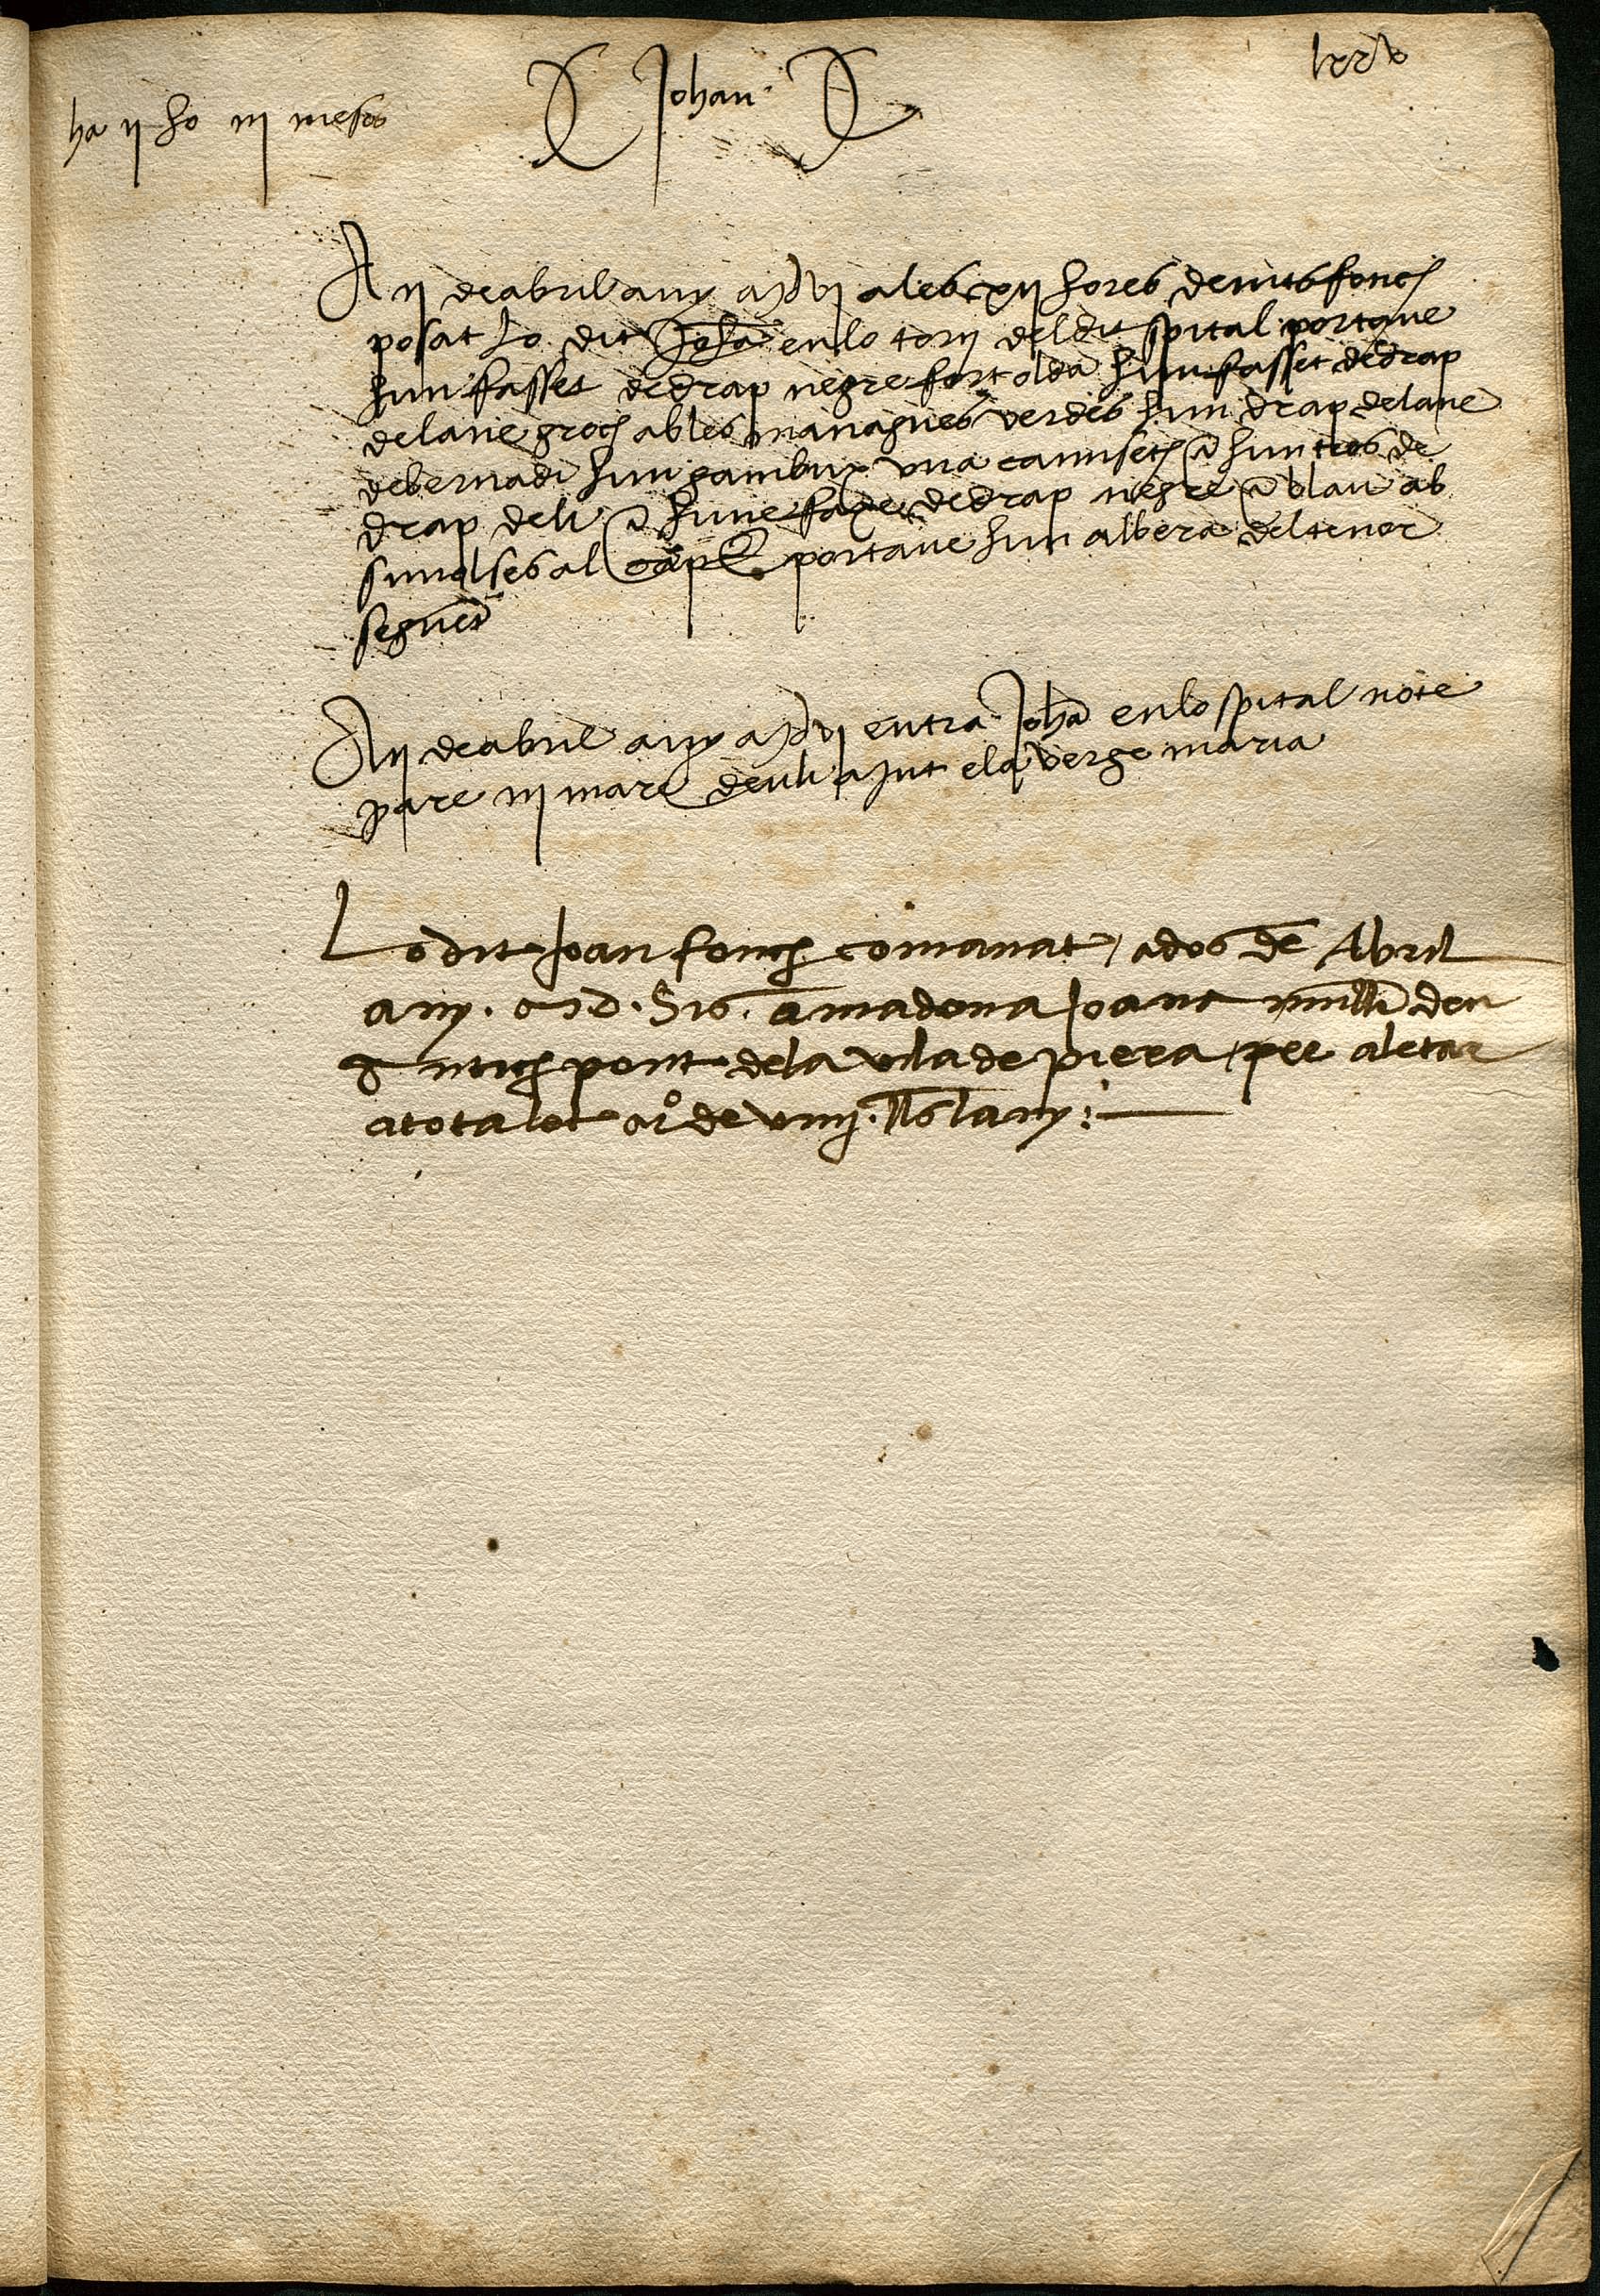 lxxv
Johan
ha ij ho iij mesos
A ij de abril any MDvj a les xij hores de nits fonch
posat lo dit Joha en lo torn del dit spital portave
hun fasset de drap negre fort olda hun fasset de drap
de lane groch ab les managues verdes hun drap de lane
de bernadi hun gambux una camiseta e hun tros de
drap de li e hune faxe de drap negre e blau ab
simolses al cap portave hun albera del tenor
seguent
A ij de abril any MDvj entra Joha en lo spital no te
pare ni mare deu li ajut e la verge maria
Lo dit Joan fonch comanat, a dos de Abril
any. MD. Sis. a madona Joana muller den
pont de la vila de piera, per aletar
a tota let a Rº de viiij. lls lany: